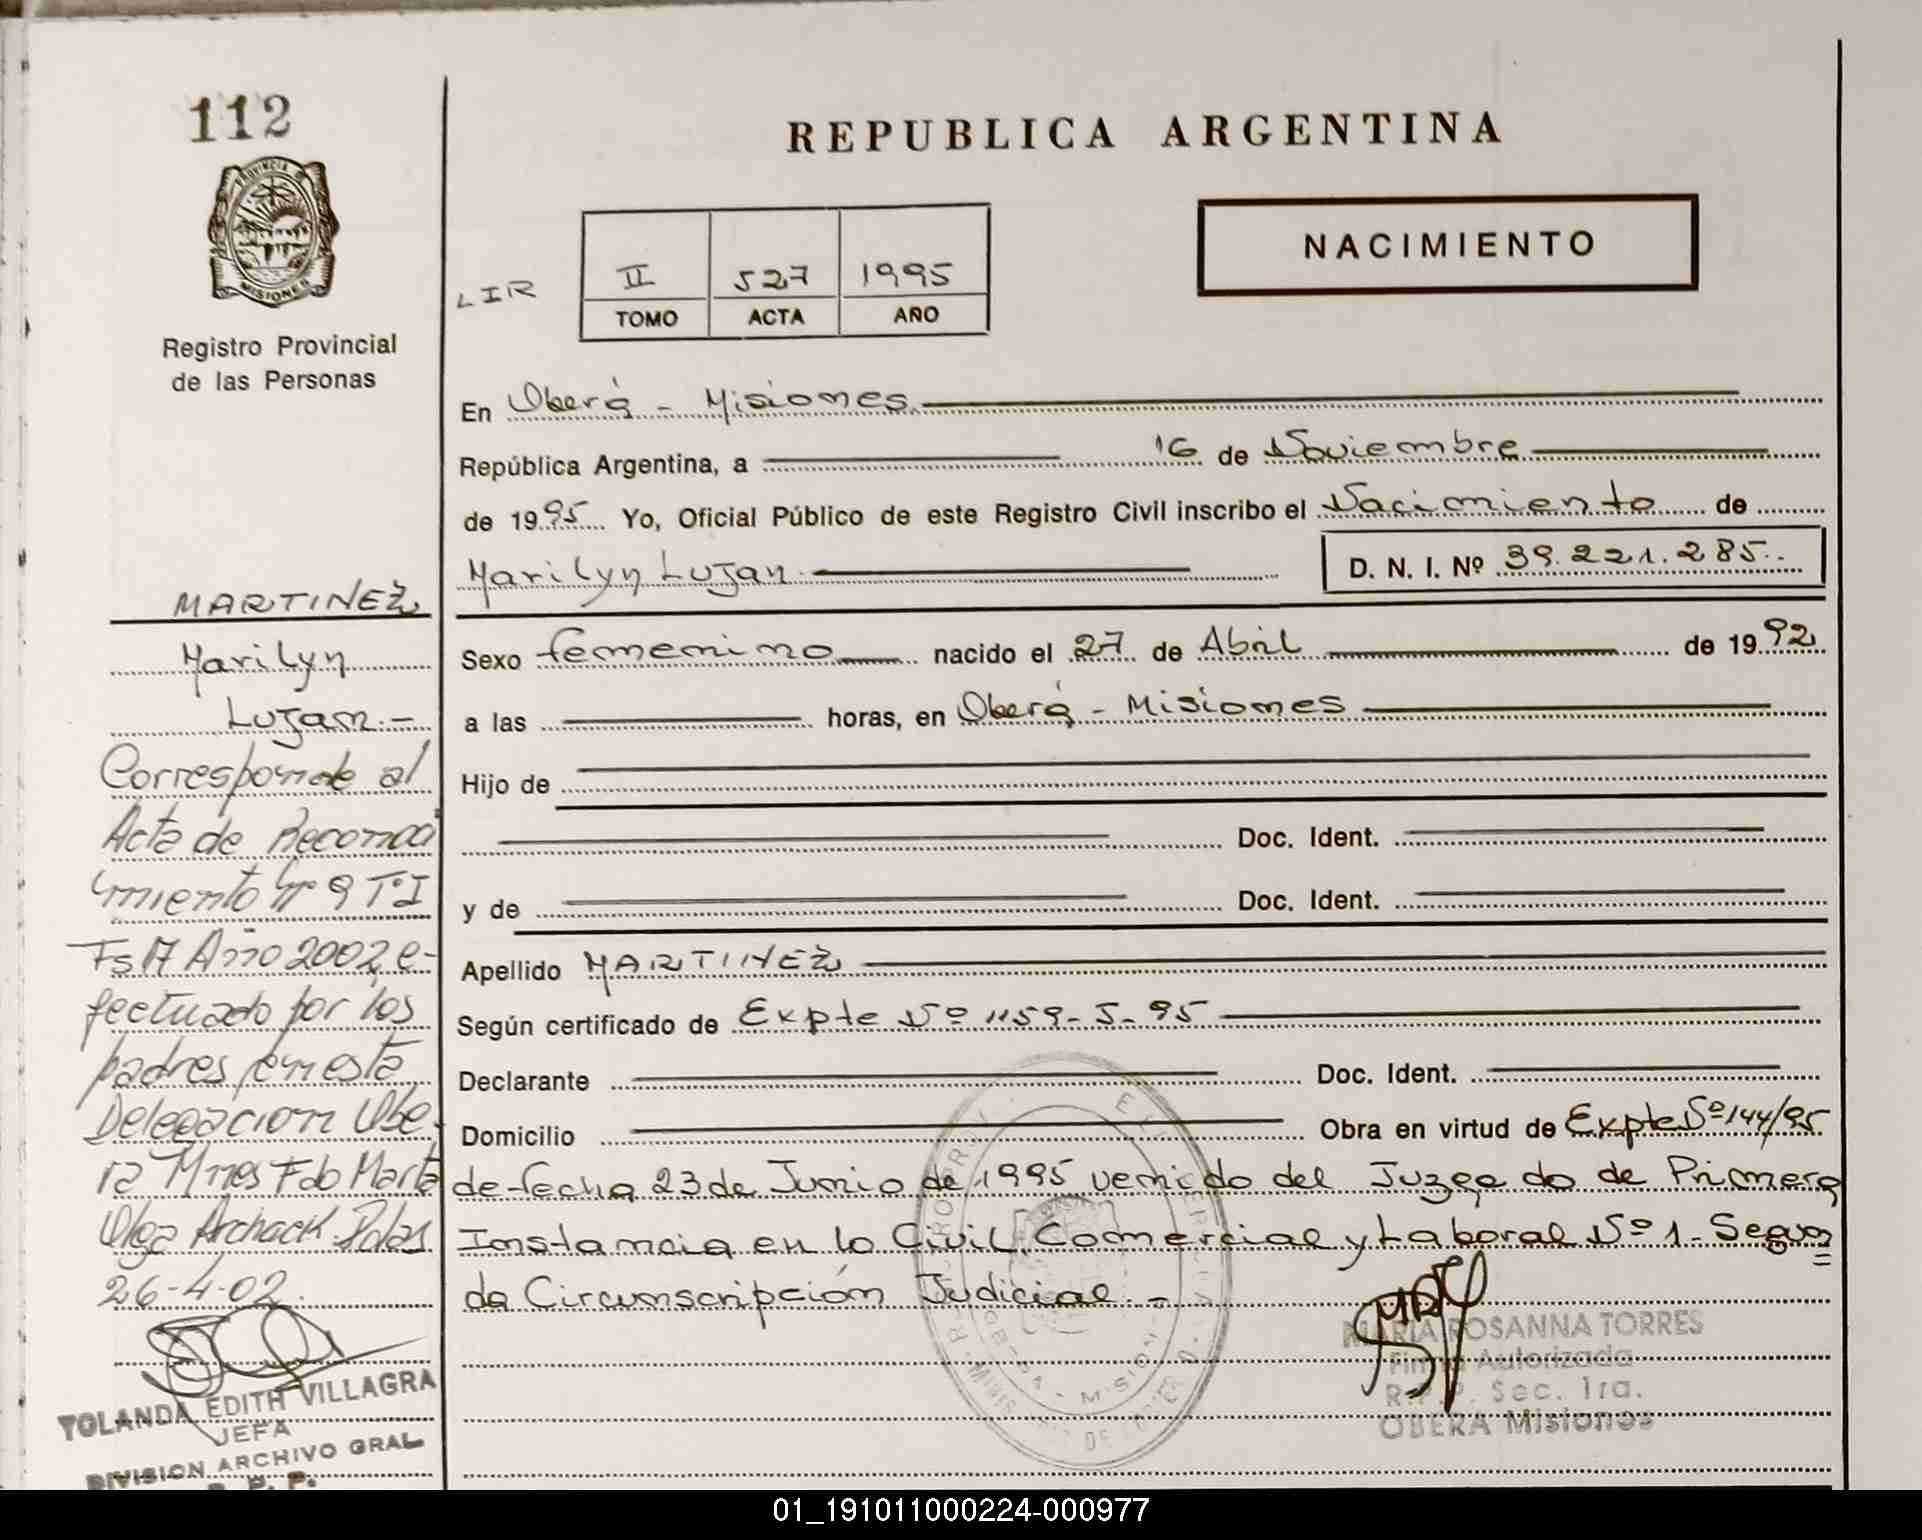 112
PROVINCIA DE
MISIONES
Registro Provincial
de las Personas
REPUBLICA ARGENTINA
NACIMIENTO
LIR
II 527 1995
TOMO ACTA AÑO
En Oberá - Misiones
República Argentina, a 16 de Noviembre
de 1995 Yo, Oficial Público de este Registro Civil inscribo el Nacimiento de
Marilyn Lujan D. N. I. Nº 39.221.285.
Sexo femenino nacido el 27 de Abril de 1992
a las horas, en Oberá - Misiones
Hijo de
Doc. Ident.
y de Doc. Ident.
Apellido MARTINEZ
Según certificado de Expte Nº 1159-S-95
Declarante Doc. Ident.
Domicilio Obra en virtud de Expte Nº 144/95
de fecha 23 de Junio de 1995 venido del Juzgado de Primera
Instancia en lo Civil, Comercial y Laboral Nº 1 - Segun
da Circunscripción Judicial.-
MARIA ROSANNA TORRES
Firma Autorizada
R.P.P. Sec. 1ra.
OBERA Misiones
MARTINEZ
Marilyn
Lujan.-
Corresponde al
Acta de Reconoci
miento Nº 9 Tº I
Fs 17 Año 2002, e-
fectuado por los
padres en esta
Delegacion Obe-
ra Mnes Fdo Marta
Olga Archack
26-4-02.
YOLANDA EDITH VILLAGRA
JEFA
DIVISION ARCHIVO GRAL
R. P. P.
01_191011000224-000977